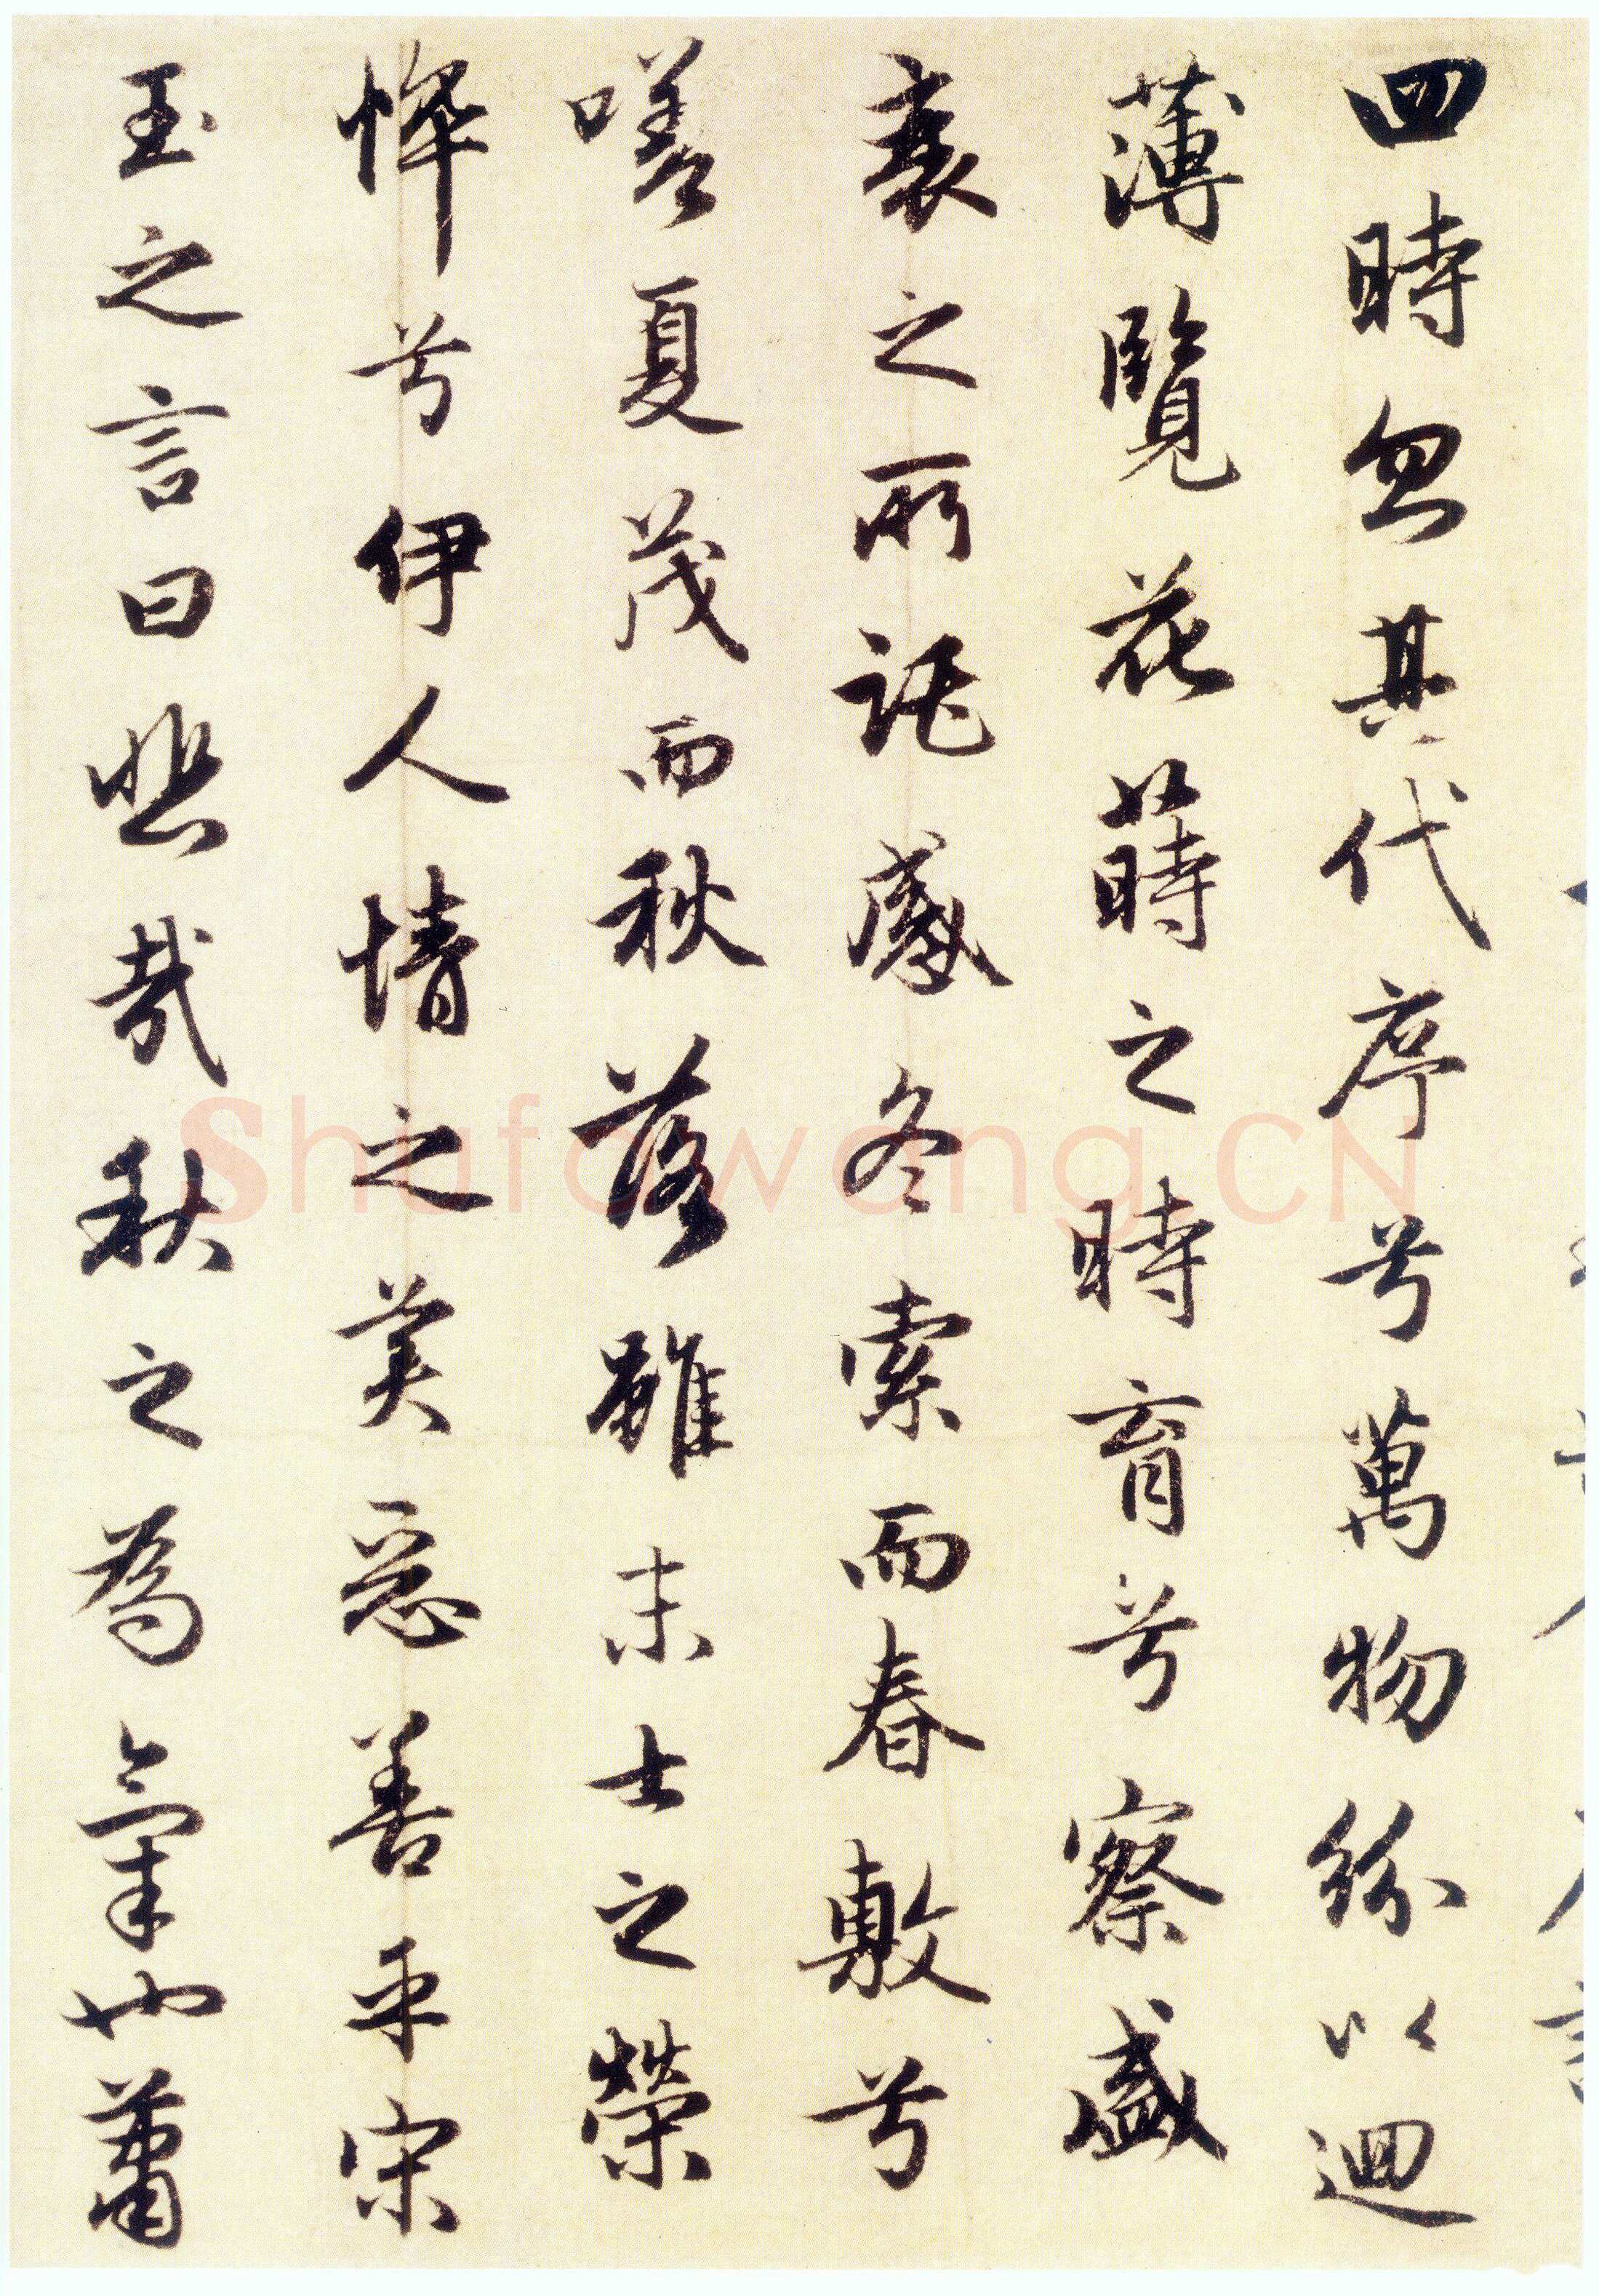 四時忽其代序兮萬物紛以迴
薄覽花蒔之時育兮察盛
衰之所託感冬索而春敷兮
嗟夏茂而秋落雖末士之榮
悴兮伊人情之美惡善乎宋
玉之言曰悲哉秋之為氣也蕭
Shufawang.CN